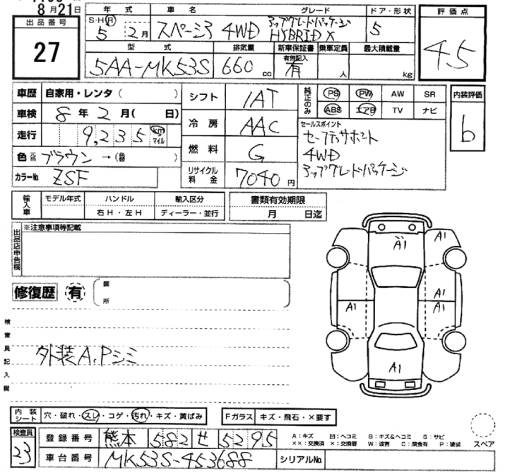 8月21日
出品番号
27
年式 車名 グレード ドア・形状 評価点
S・H・R
5年2月 スペーシア 4WD アップグレードパッケージ HYBRID X 5 4.5
型式 排気量 新車保証書 乗車定員 最大積載量
5AA-MK53S 660cc 有効記入 有 人 kg
車歴 自家用・レンタ( ) シフト IAT 純正のみ PS PW AW SR 内装評価
車検 8年2月( 日) 冷房 AAC ABS エアB TV ナビ b
走行 9,235 km マイル 燃料 G セールスポイント
色 ブラウン→ リサイクル料金 7040円
セーフティサポート
4WD
アップグレードパッケージ
カラーNo. ZSF
輸入車 モデル年式 ハンドル 輸入区分 書類有効期限
右H・左H ディーラー・並行 月 日迄
出品店申告欄 ※注意事項等記載
修復歴 有 箇所
検査員記入欄
外装A,Pシミ
A1
A1
A1
A1
A1
A1
内装シート 穴・破れ・スレ・コゲ・汚れ・キズ・黄ばみ Fガラス キズ・飛石・×要す
検査員 23
登録番号 熊本 582 せ 5295
車台番号 MK53S-453688 シリアルNo.
スペア